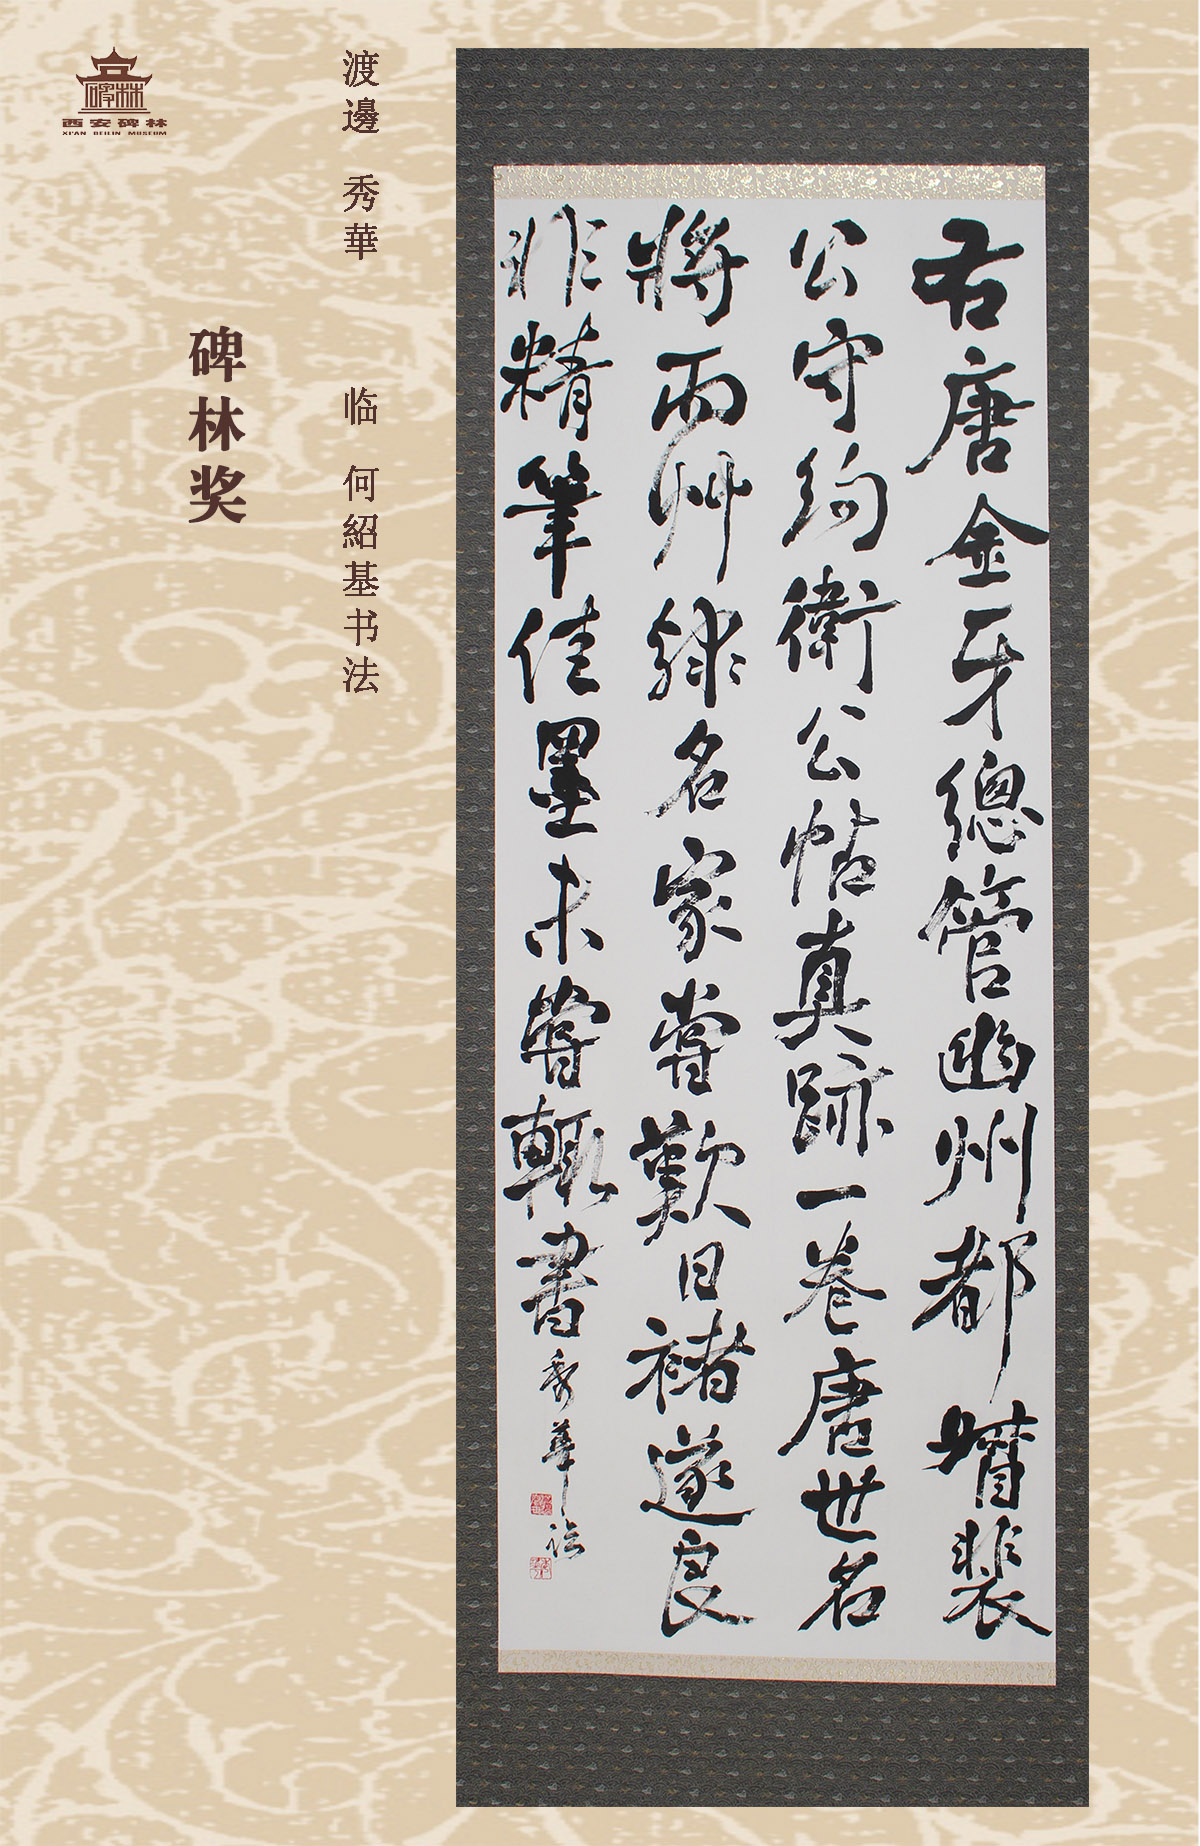 西安碑林
XI'AN BEILIN MUSEUM
渡邊 秀華 临 何紹基书法
碑林奖
右唐金牙總管幽州都督裴
公守約衛公帖真跡一卷唐世名
將而艸隸名家嘗歎曰褚遂良
非精筆佳墨未嘗輒書
秀華臨